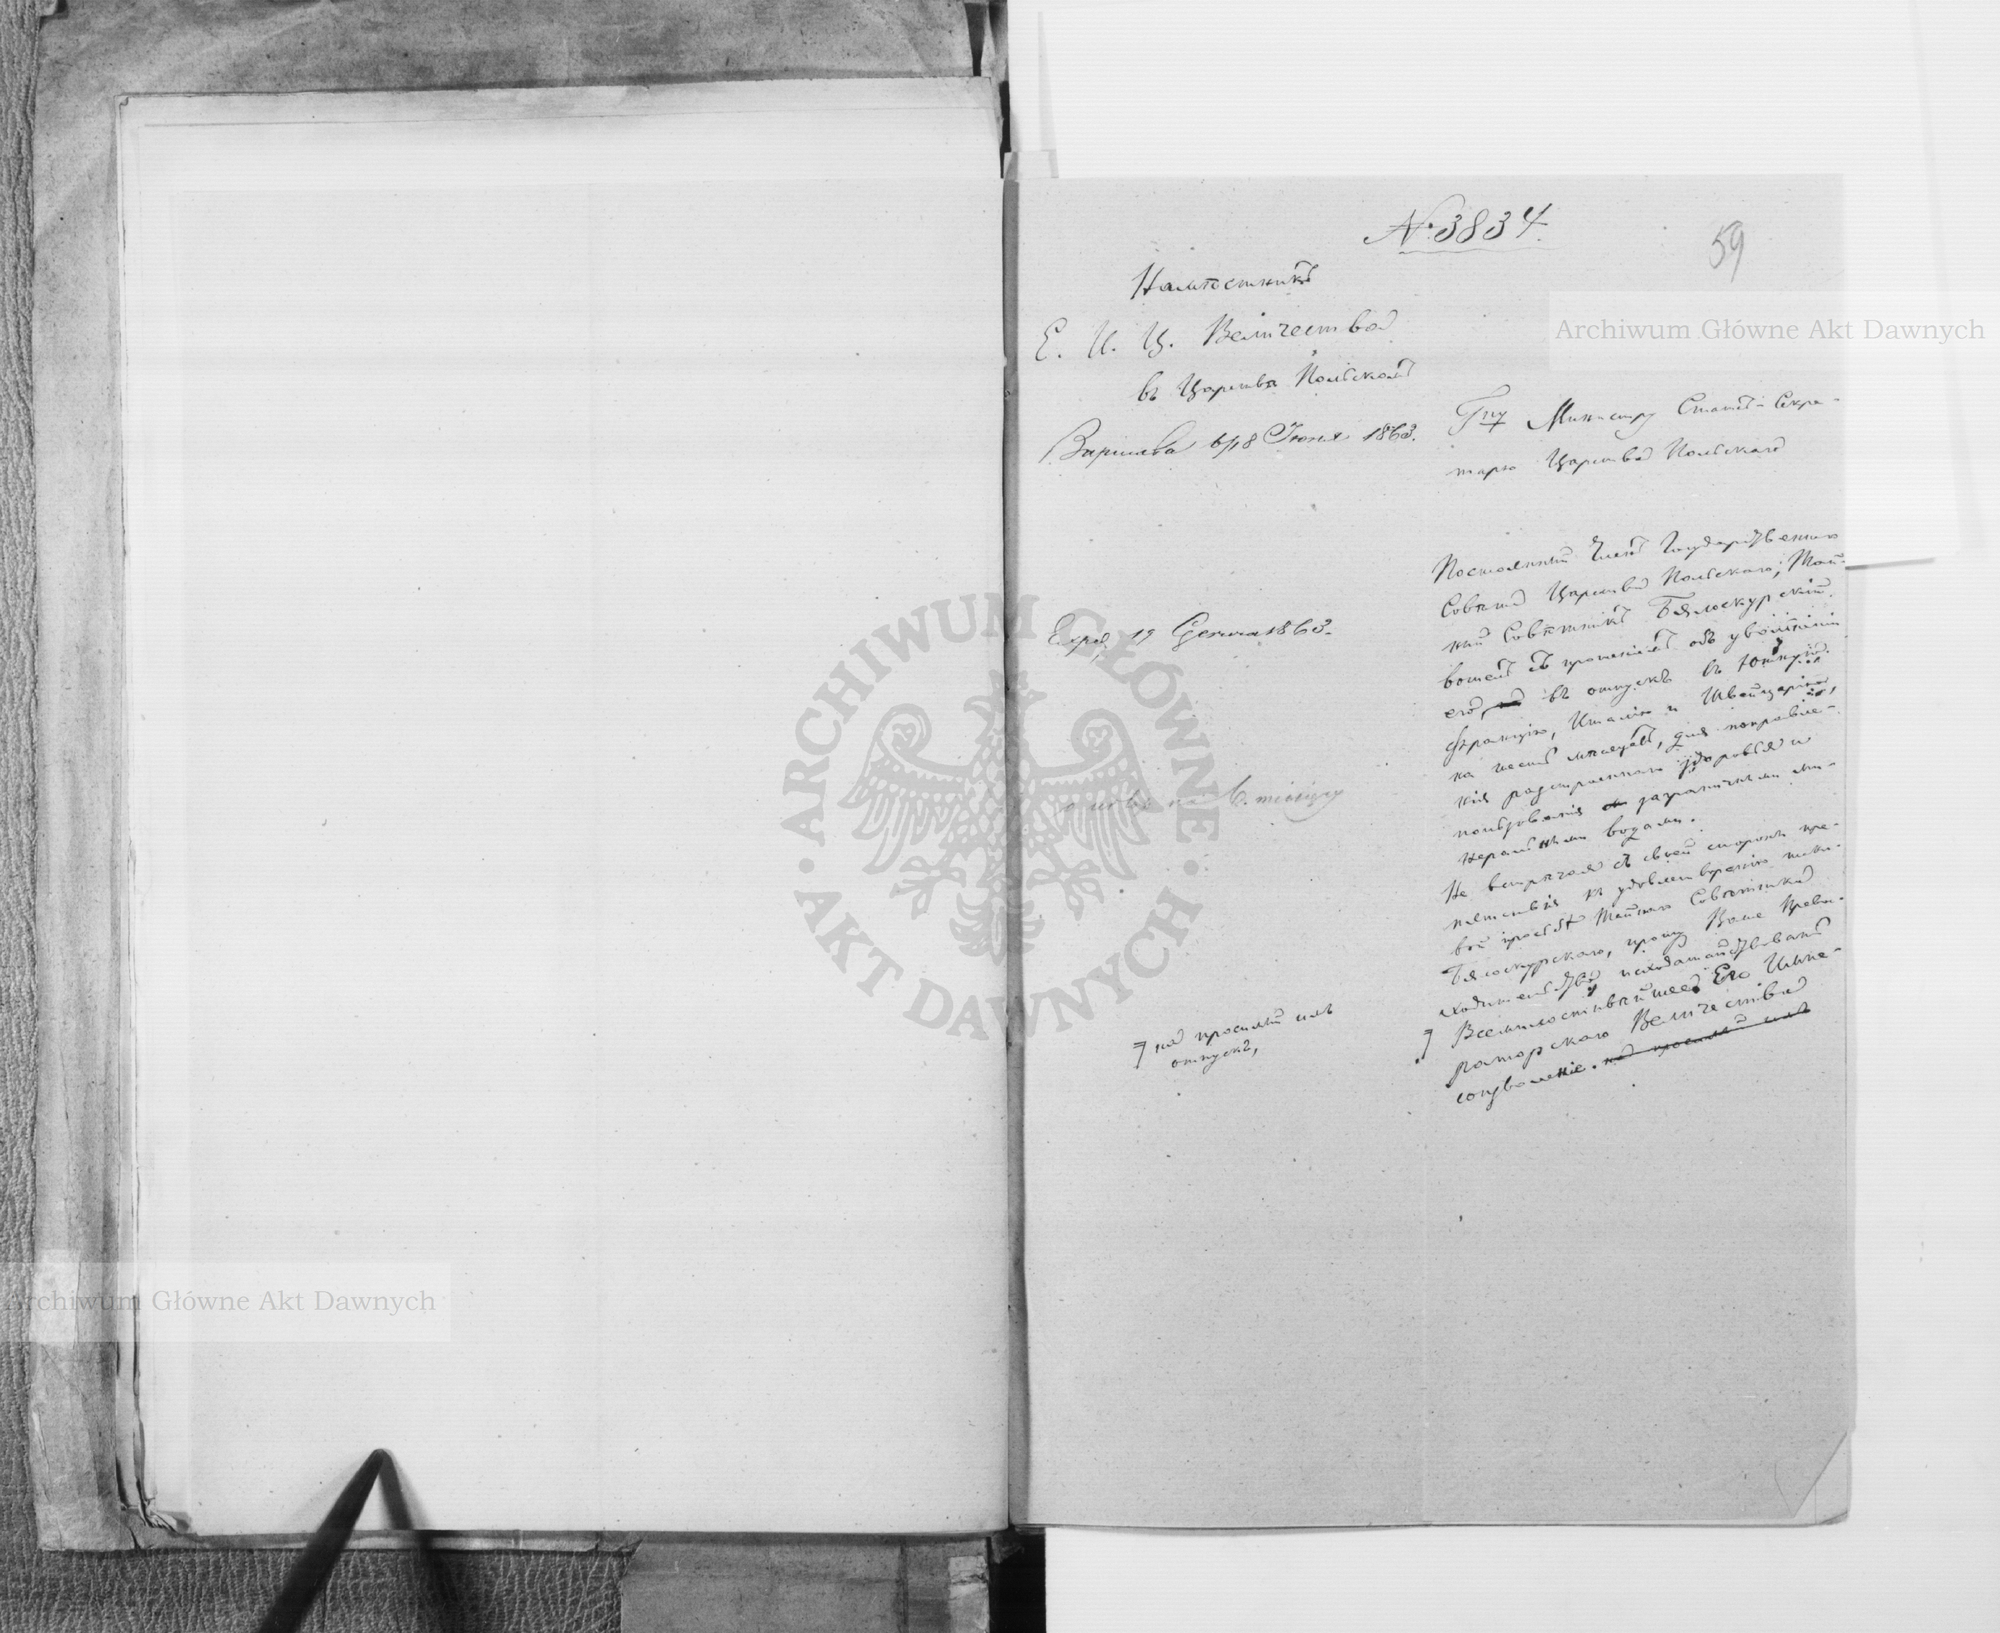 № 3834
59
Намѣстникъ
Е. И. Ц. Величества
въ Царствѣ Польскомъ
Варшава 6/18 Іюня 1863.
Гну Министру Статсъ-Секре-
тарю Царства Польскаго
Постоянный Членъ Государственнаго
Совѣта Царства Польскаго, Тай-
ный Совѣтникъ Бялоскурскій
вошелъ съ прошеніемъ объ увольненіи
его, въ отпускъ въ южную
Францію, Италію и Швейцарію,
на шесть мѣсяцевъ, для поправле-
нія разстроеннаго здоровья и
пользованія заграничными ми-
неральными водами.
Не встрѣчая съ своей стороны пре-
пятствія къ удовлетворенію тако-
вой просьбы Тайнаго Совѣтника
Бялоскурскаго, прошу Ваше Превос-
ходительство исходатайствовать
Всемилостивѣйшее Его Импе-
раторскаго Величества
соизволеніе. на просимый имъ
Exped. 19 Czerwca 1863.
na 6. miesięcy
на просимый имъ
отпускъ,
Archiwum Główne Akt Dawnych
ARCHIWUM GŁÓWNE · AKT DAWNYCH ·
Archiwum Główne Akt Dawnych